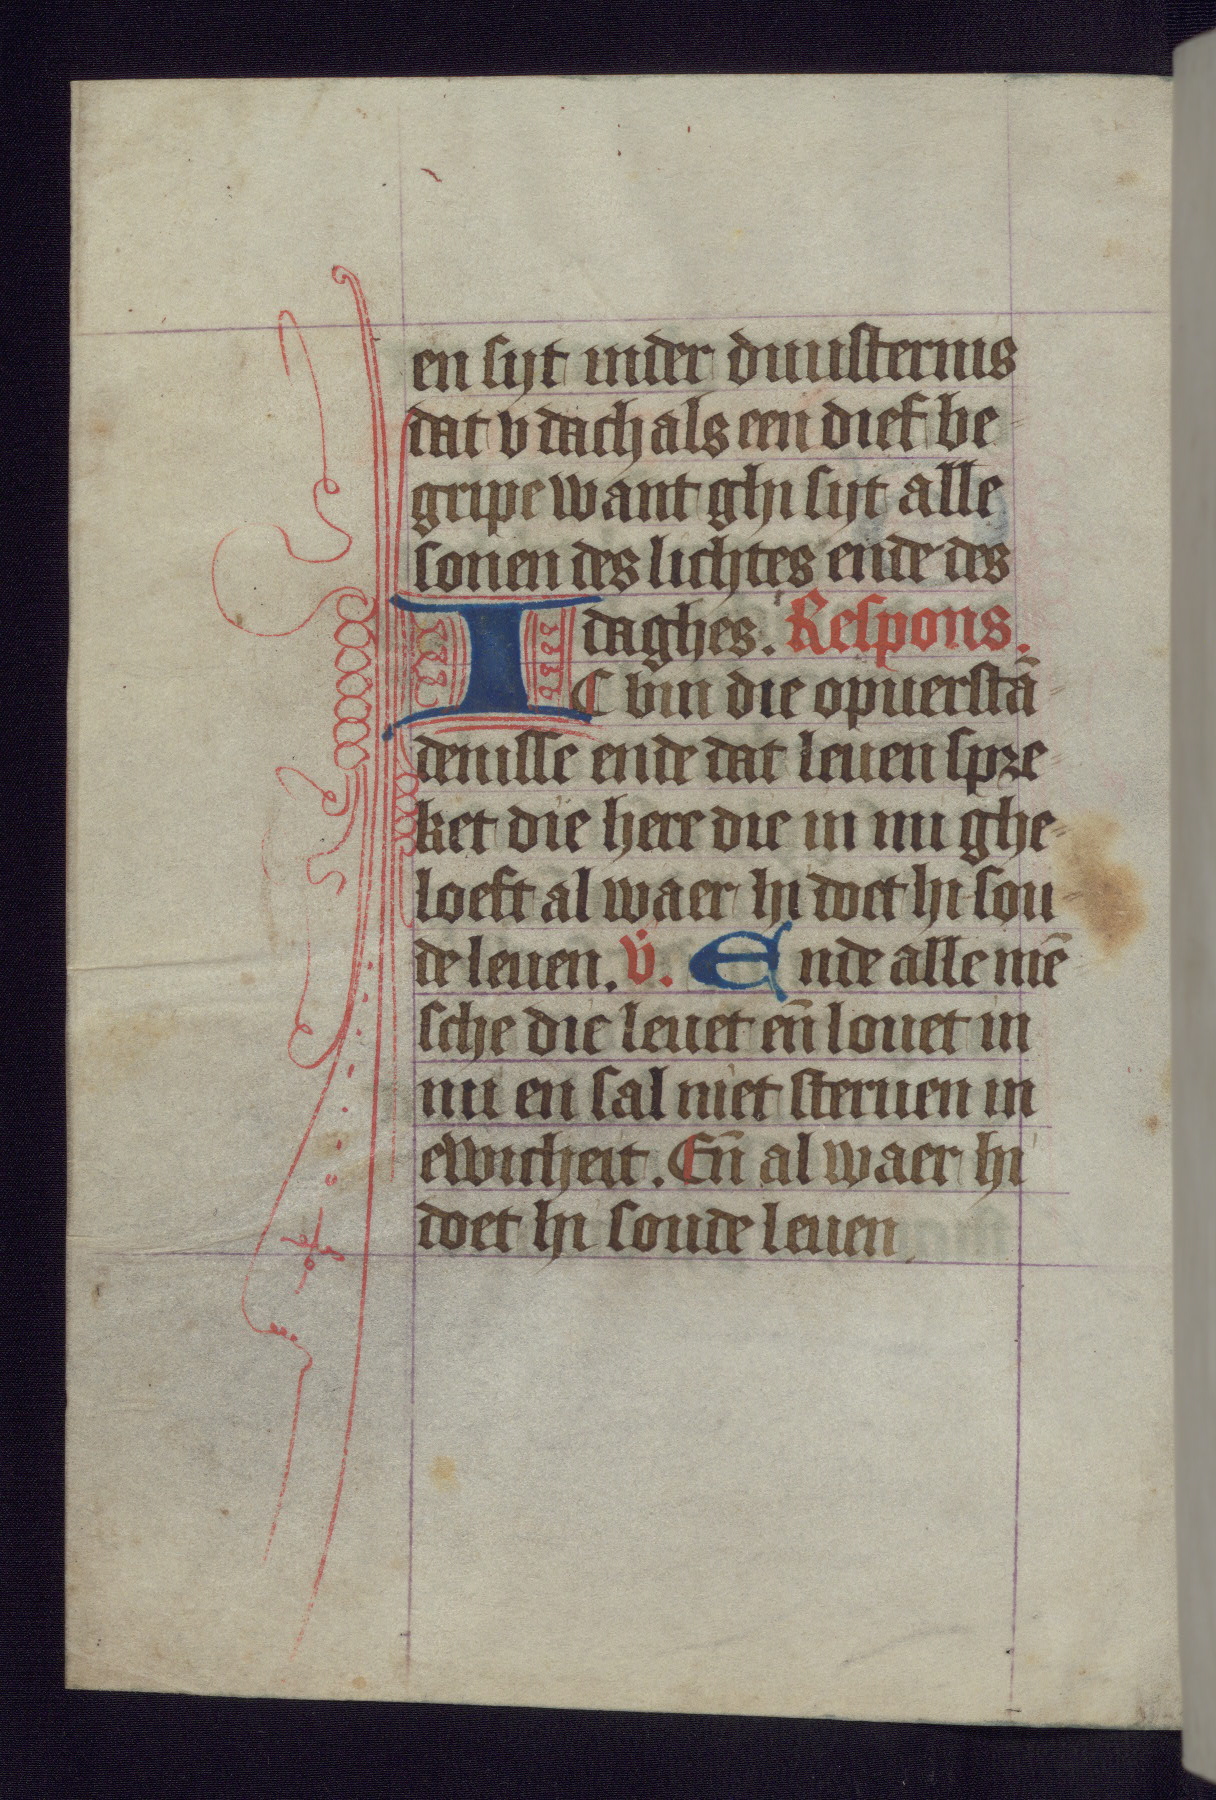 en syt inder duusternis
dat v dach als een dief be
gripe want ghi syt alle
sonen des lichtes ende des
daghes. Respons.
IC bin die opuerstā
denisse ende dat leuen spre
ket die here die in mi ghe
loeft al waer hi doet hi sou
de leuen. V. Ende alle mē
sche die leuet en̄ louet in
mi en sal niet steruen in
ewicheit. En̄ al waer hi
doet hi soude leuen